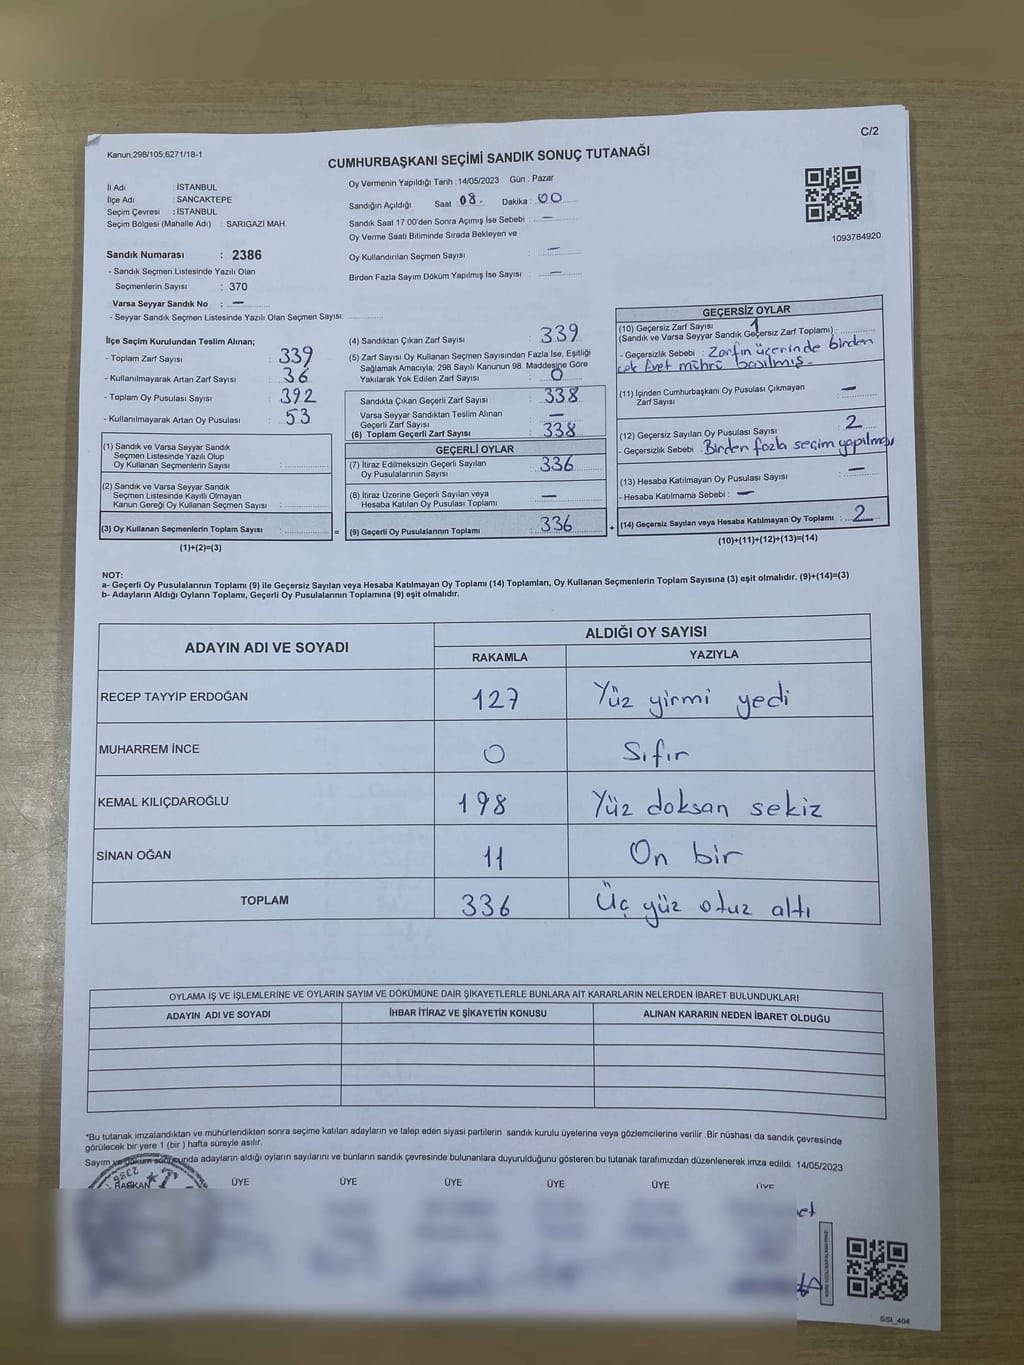 C/2
Kanun,298/105,6271/18-1
CUMHURBAŞKANI SEÇİMİ SANDIK SONUÇ TUTANAĞI
İl Adı : İSTANBUL
İlçe Adı : SANCAKTEPE
Seçim Çevresi : İSTANBUL
Seçim Bölgesi (Mahalle Adı) : SARIGAZİ MAH
Oy Vermenin Yapıldığı Tarih : 14/05/2023 Gün : Pazar
Sandığın Açıldığı Saat : 08. Dakika : 00
Sandık Saat 17:00'den Sonra Açımış İse Sebebi : —
Oy Verme Saati Bitiminde Sırada Bekleyen ve
Oy Kullandırılan Seçmen Sayısı : —
Birden Fazla Sayım Döküm Yapılmış İse Sayısı : —
1093784920
Sandık Numarası : 2386
- Sandık Seçmen Listesinde Yazılı Olan
Seçmenlerin Sayısı : 370
Varsa Seyyar Sandık No : —
- Seyyar Sandık Seçmen Listesinde Yazılı Olan Seçmen Sayısı:
İlçe Seçim Kurulundan Teslim Alınan;
- Toplam Zarf Sayısı : 339
- Kullanılmayarak Artan Zarf Sayısı : 36
- Toplam Oy Pusulası Sayısı : 392
- Kullanılmayarak Artan Oy Pusulası : 53
(1) Sandık ve Varsa Seyyar Sandık
Seçmen Listesinde Yazılı Olup
Oy Kullanan Seçmenlerin Sayısı :
(2) Sandık ve Varsa Seyyar Sandık
Seçmen Listesinde Kayıtlı Olmayan
Kanun Gereği Oy Kullanan Seçmen Sayısı :
(3) Oy Kullanan Seçmenlerin Toplam Sayısı :
(1)+(2)=(3)
(4) Sandıktan Çıkan Zarf Sayısı : 339
(5) Zarf Sayısı Oy Kullanan Seçmen Sayısından Fazla İse, Eşitliği
Sağlamak Amacıyla, 298 Sayılı Kanunun 98. Maddesine Göre
Yakılarak Yok Edilen Zarf Sayısı : 0
Sandıkta Çıkan Geçerli Zarf Sayısı : 338
Varsa Seyyar Sandıktan Teslim Alınan
Geçerli Zarf Sayısı : —
(6) Toplam Geçerli Zarf Sayısı : 338
GEÇERLİ OYLAR
(7) İtiraz Edilmeksizin Geçerli Sayılan
Oy Pusulalarının Sayısı : 336
(8) İtiraz Üzerine Geçerli Sayılan veya
Hesaba Katılan Oy Pusulası Toplamı : —
= (9) Geçerli Oy Pusulalarının Toplamı : 336
GEÇERSİZ OYLAR
(10) Geçersiz Zarf Sayısı 1
(Sandık ve Varsa Seyyar Sandık Geçersiz Zarf Toplamı) :
- Geçersizlik Sebebi : Zarfın üzerinde birden
çok Evet mührü basılmış.
(11) İçinden Cumhurbaşkanı Oy Pusulası Çıkmayan
Zarf Sayısı : —
(12) Geçersiz Sayılan Oy Pusulası Sayısı : 2
- Geçersizlik Sebebi : Birden fazla seçim yapılması
(13) Hesaba Katılmayan Oy Pusulası Sayısı : —
- Hesaba Katılmama Sebebi : —
+ (14) Geçersiz Sayılan veya Hesaba Katılmayan Oy Toplamı : 2
(10)+(11)+(12)+(13)=(14)
NOT:
a- Geçerli Oy Pusulalarının Toplamı (9) ile Geçersiz Sayılan veya Hesaba Katılmayan Oy Toplamı (14) Toplamları, Oy Kullanan Seçmenlerin Toplam Sayısına (3) eşit olmalıdır. (9)+(14)=(3)
b- Adayların Aldığı Oyların Toplamı, Geçerli Oy Pusulalarının Toplamına (9) eşit olmalıdır.
ADAYIN ADI VE SOYADI
ALDIĞI OY SAYISI
RAKAMLA YAZIYLA
RECEP TAYYİP ERDOĞAN 127 Yüz yirmi yedi
MUHARREM İNCE 0 Sıfır
KEMAL KILIÇDAROĞLU 198 Yüz doksan sekiz
SİNAN OĞAN 11 On bir
TOPLAM 336 Üç yüz otuz altı
OYLAMA İŞ VE İŞLEMLERİNE VE OYLARIN SAYIM VE DÖKÜMÜNE DAİR ŞİKAYETLERLE BUNLARA AİT KARARLARIN NELERDEN İBARET BULUNDUKLARI
ADAYIN ADI VE SOYADI İHBAR İTİRAZ VE ŞİKAYETİN KONUSU ALINAN KARARIN NEDEN İBARET OLDUĞU
*Bu tutanak imzalandıktan ve mühürlendikten sonra seçime katılan adayların ve talep eden siyasi partilerin sandık kurulu üyelerine veya gözlemcilerine verilir .Bir nüshası da sandık çevresinde
görülecek bir yere 1 (bir ) hafta süreyle asılır.
Sayım ve döküm sonucunda adayların aldığı oyların sayılarını ve bunların sandık çevresinde bulunanlara duyurulduğunu gösteren bu tutanak tarafımızdan düzenlenerek imza edildi. 14/05/2023
BAŞKAN ÜYE ÜYE ÜYE ÜYE ÜYE ÜYE
2386
SSI_404